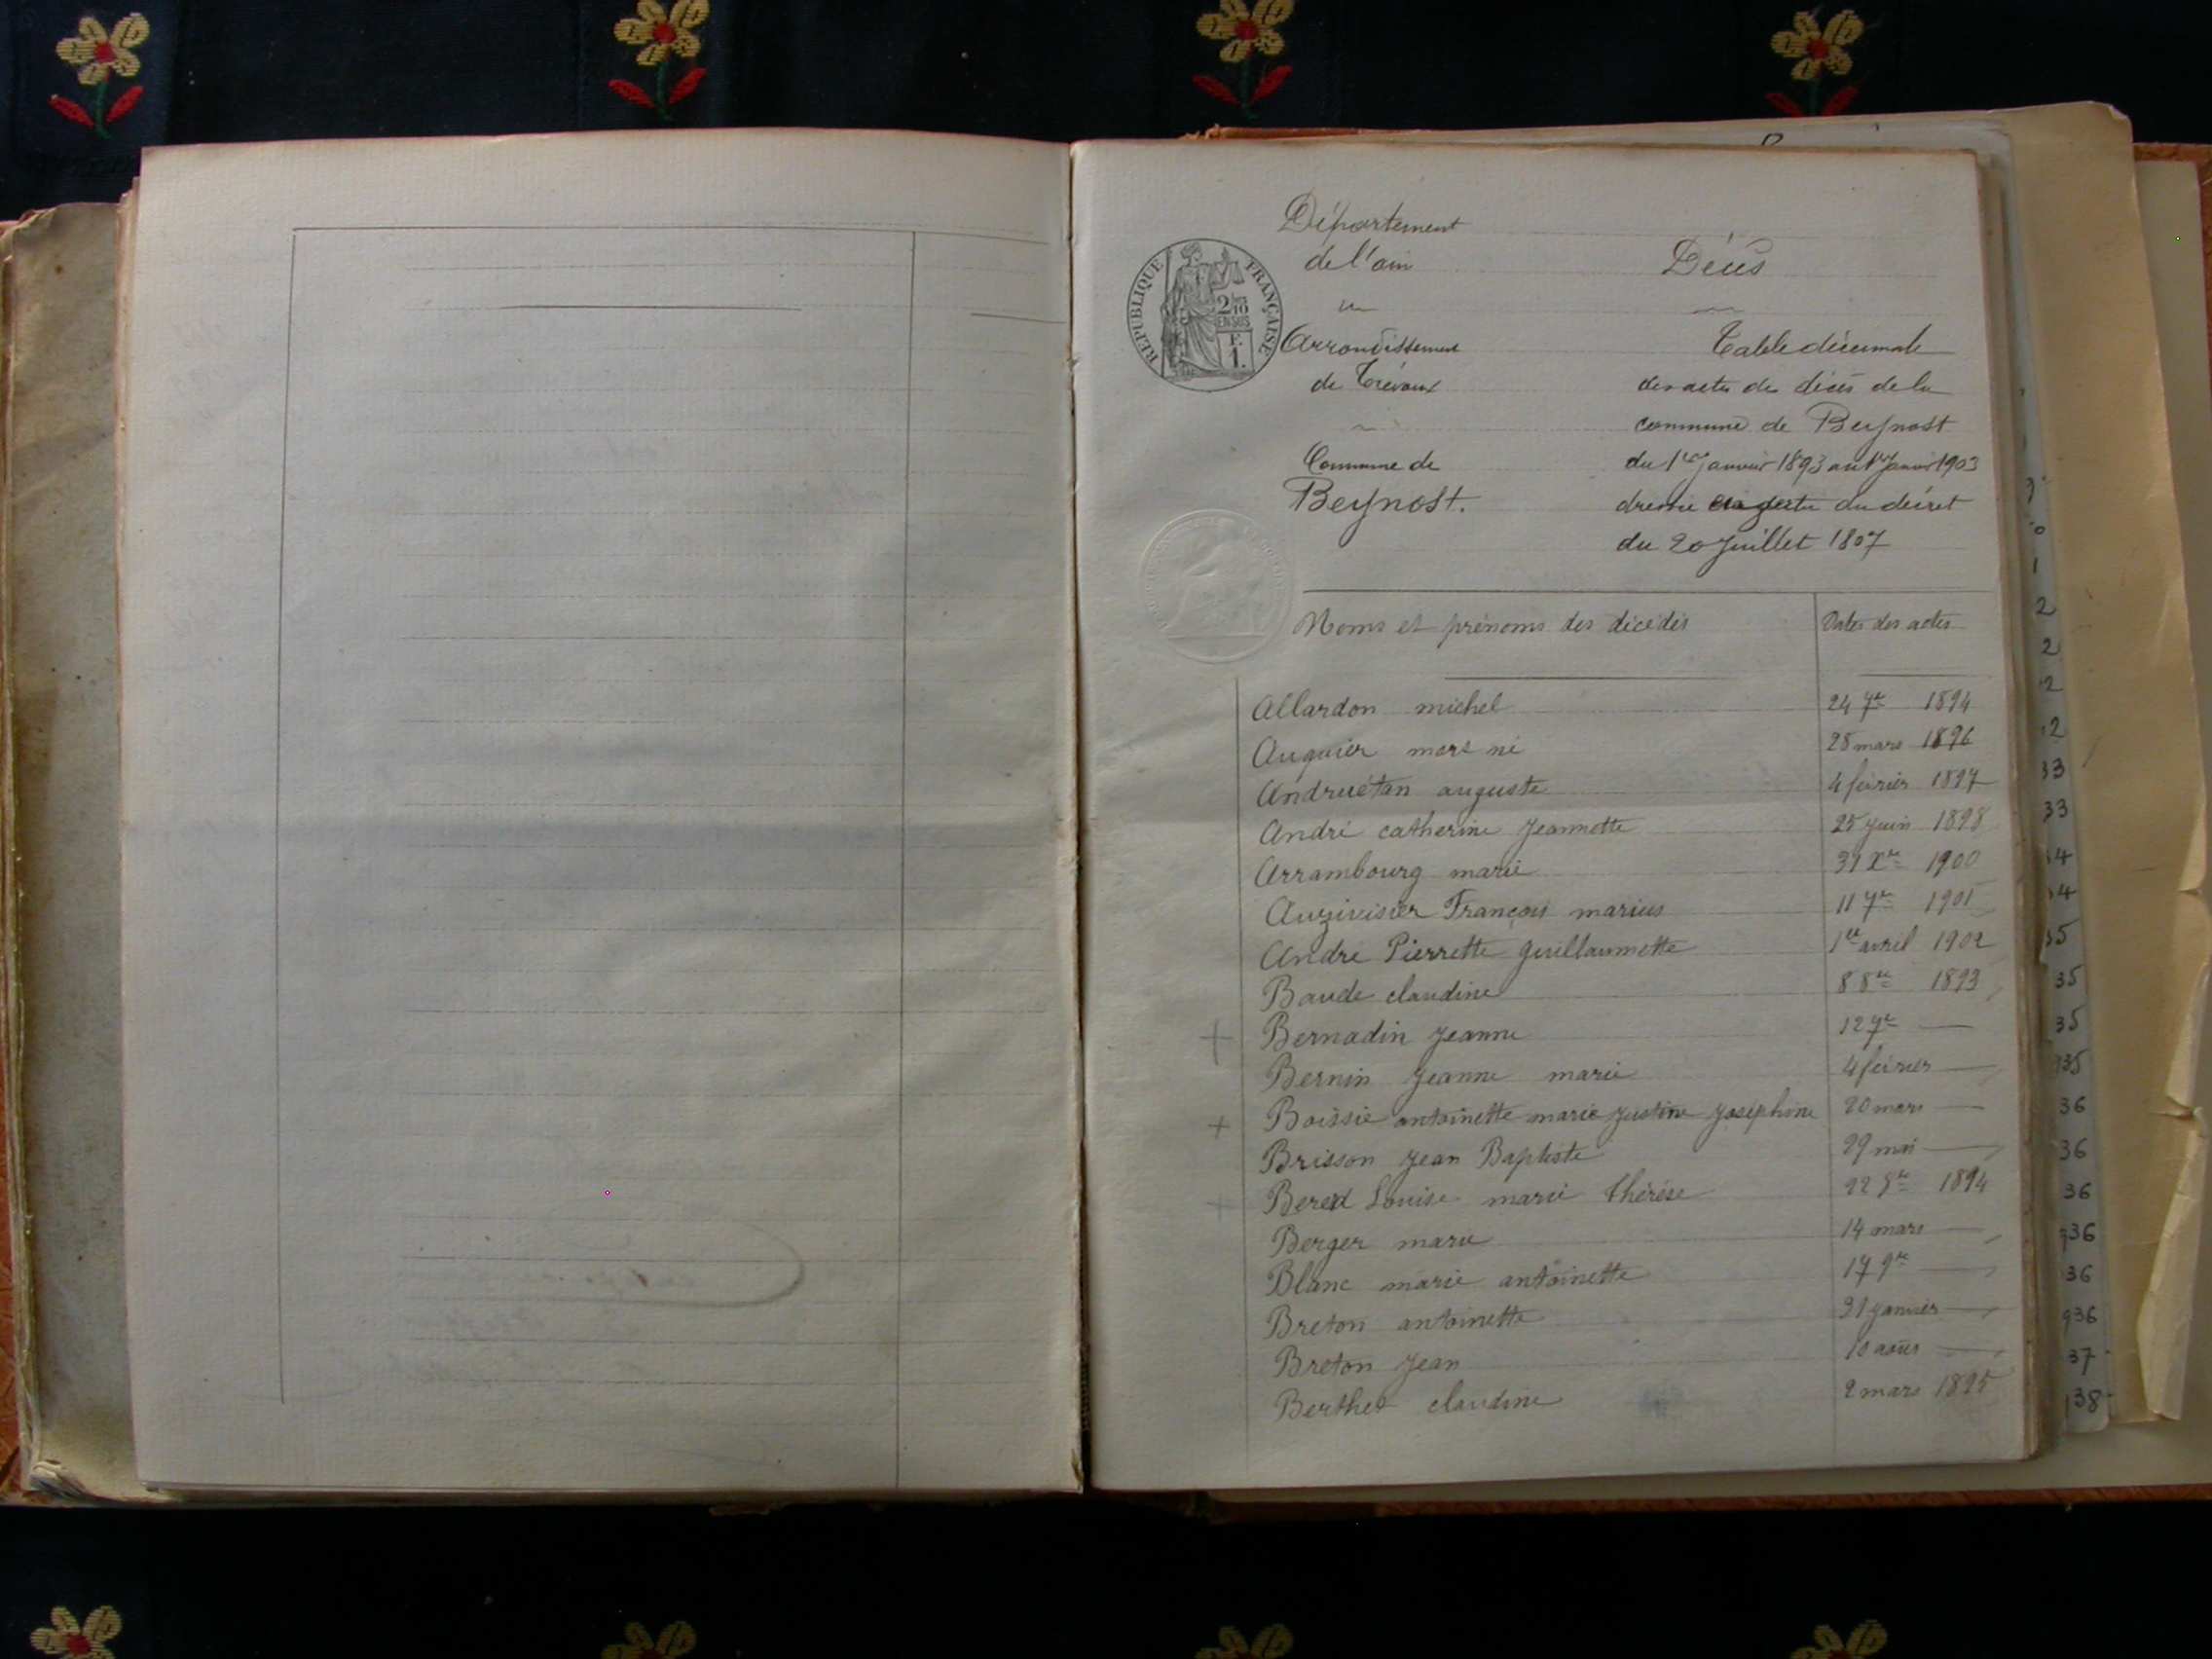 Département
de l'ain
Arrondissement
de Trévoux
Commune de
Beynost.
REPUBLIQUE FRANÇAISE
2/10
EN SUS
F.
1.
Décès
Table décennale
des actes de décès de la
commune de Beynost
du 1er janvier 1893 au 1er Janvier 1903
dressée en vertu du décret
du 20 juillet 1807
Noms et prénoms des décédés Dates des actes
Allardon michel 24 7re 1894
Auquier mort né 28 mars 1896
Andruétan auguste 4 février 1897
André catherine Jeannette 25 juin 1898
Arrambourg marie 31 Xre 1900
Auzivisier François marius 11 7re 1901
André Pierrette guillaumette 1er avril 1902
Baude claudine 8 8re 1893
+ Bernadin Jeanne 12 7re —
Bernin Jeanne marie 4 février —
+ Boissié antoinette marie Justine Joséphine 20 mars —
Brisson Jean Baptiste 29 mai —
+ Louise marie thérèse 22 8re 1894
Berger marie 14 mars —
Blanc marie antoinette 17 9re —
Breton antoinette 21 janvier —
Breton Jean 10 août —
Berthet claudine 2 mars 1895
1
2
2
12
12
33
33
34
34
35
35
35
935
36
36
36
936
36
936
37
38